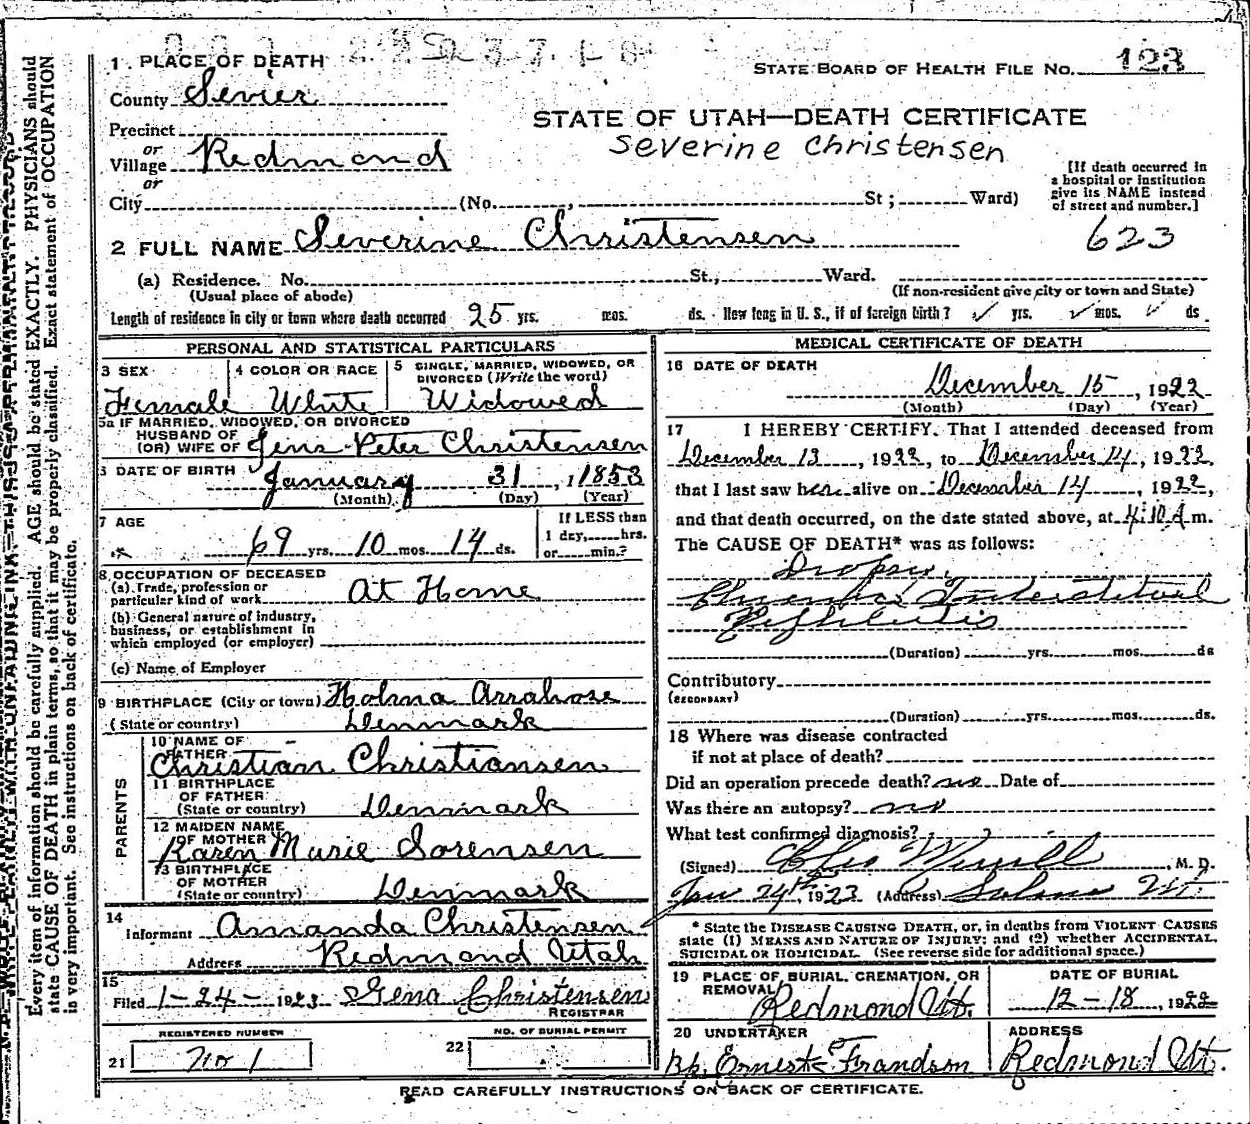 1 PLACE OF DEATH
STATE BOARD OF HEALTH FILE NO. 123
County Sevier
STATE OF UTAH—DEATH CERTIFICATE
Severine Christensen
Precinct
or
Village Redmond
or
City (No. , St ; Ward)
[If death occurred in
a hospital or institution
give its NAME instead
of street and number.]
2 FULL NAME Severine Christensen
623
(a) Residence. No. St., Ward.
(Usual place of abode)
(If non-resident give city or town and State)
Length of residence in city or town where death occurred 25 yrs. mos. ds. How long in U. S., if of foreign birth? ✓ yrs. ✓ mos. ✓ ds.
PERSONAL AND STATISTICAL PARTICULARS
3 SEX
Female
4 COLOR OR RACE
White
5 SINGLE, MARRIED, WIDOWED, OR
DIVORCED (Write the word)
Widowed
5a IF MARRIED, WIDOWED, OR DIVORCED
HUSBAND OF
(OR) WIFE OF Jens Peter Christensen
6 DATE OF BIRTH January 31, 1853
(Month) (Day) (Year)
7 AGE
69 yrs. 10 mos. 14 ds.
If LESS than
1 day, hrs.
or min.?
8 OCCUPATION OF DECEASED
(a) Trade, profession or
particular kind of work At Home
(b) General nature of industry,
business, or establishment in
which employed (or employer)
(c) Name of Employer
9 BIRTHPLACE (City or town)
(State or country) Denmark
PARENTS
10 NAME OF
FATHER
Christian Christiansen
11 BIRTHPLACE
OF FATHER
(State or country) Denmark
12 MAIDEN NAME
OF MOTHER
Karen Marie Sorensen
13 BIRTHPLACE
OF MOTHER
(State or country) Denmark
14
Informant Amanda Christensen
Address Redmond Utah
15
Filed 1-24-1923 Gena Christensen
REGISTRAR
REGISTERED NUMBER
21 No 1
NO. OF BURIAL PERMIT
22
MEDICAL CERTIFICATE OF DEATH
16 DATE OF DEATH
December 15, 1922
(Month) (Day) (Year)
17 I HEREBY CERTIFY. That I attended deceased from
December 13, 1922, to December 14, 1922,
that I last saw her alive on December 14, 1922,
and that death occurred, on the date stated above, at 4:10 A m.
The CAUSE OF DEATH* was as follows:
Dropsy.
Chronic Interstitial
Nephritis
(Duration) yrs. mos. ds
Contributory
(SECONDARY)
(Duration) yrs. mos. ds.
18 Where was disease contracted
if not at place of death?
Did an operation precede death? no Date of
Was there an autopsy? no
What test confirmed diagnosis?
(Signed) M. D.
Jan 24th, 1923 (Address) Salina Ut.
* State the DISEASE CAUSING DEATH, or, in deaths from VIOLENT CAUSES
state (1) MEANS AND NATURE OF INJURY; and (2) whether ACCIDENTAL,
SUICIDAL OR HOMICIDAL (See reverse side for additional space.)
19 PLACE OF BURIAL, CREMATION, OR
REMOVAL
Redmond Ut.
DATE OF BURIAL
12-18, 1922
20 UNDERTAKER
Bp. Ernest Frandson
ADDRESS
Redmond Ut.
READ CAREFULLY INSTRUCTIONS ON BACK OF CERTIFICATE.
Every item of information should be carefully supplied. AGE should be stated EXACTLY. PHYSICIANS should
state CAUSE OF DEATH in plain terms, so that it may be properly classified. Exact statement of OCCUPATION
is very important. See instructions on back of certificate.